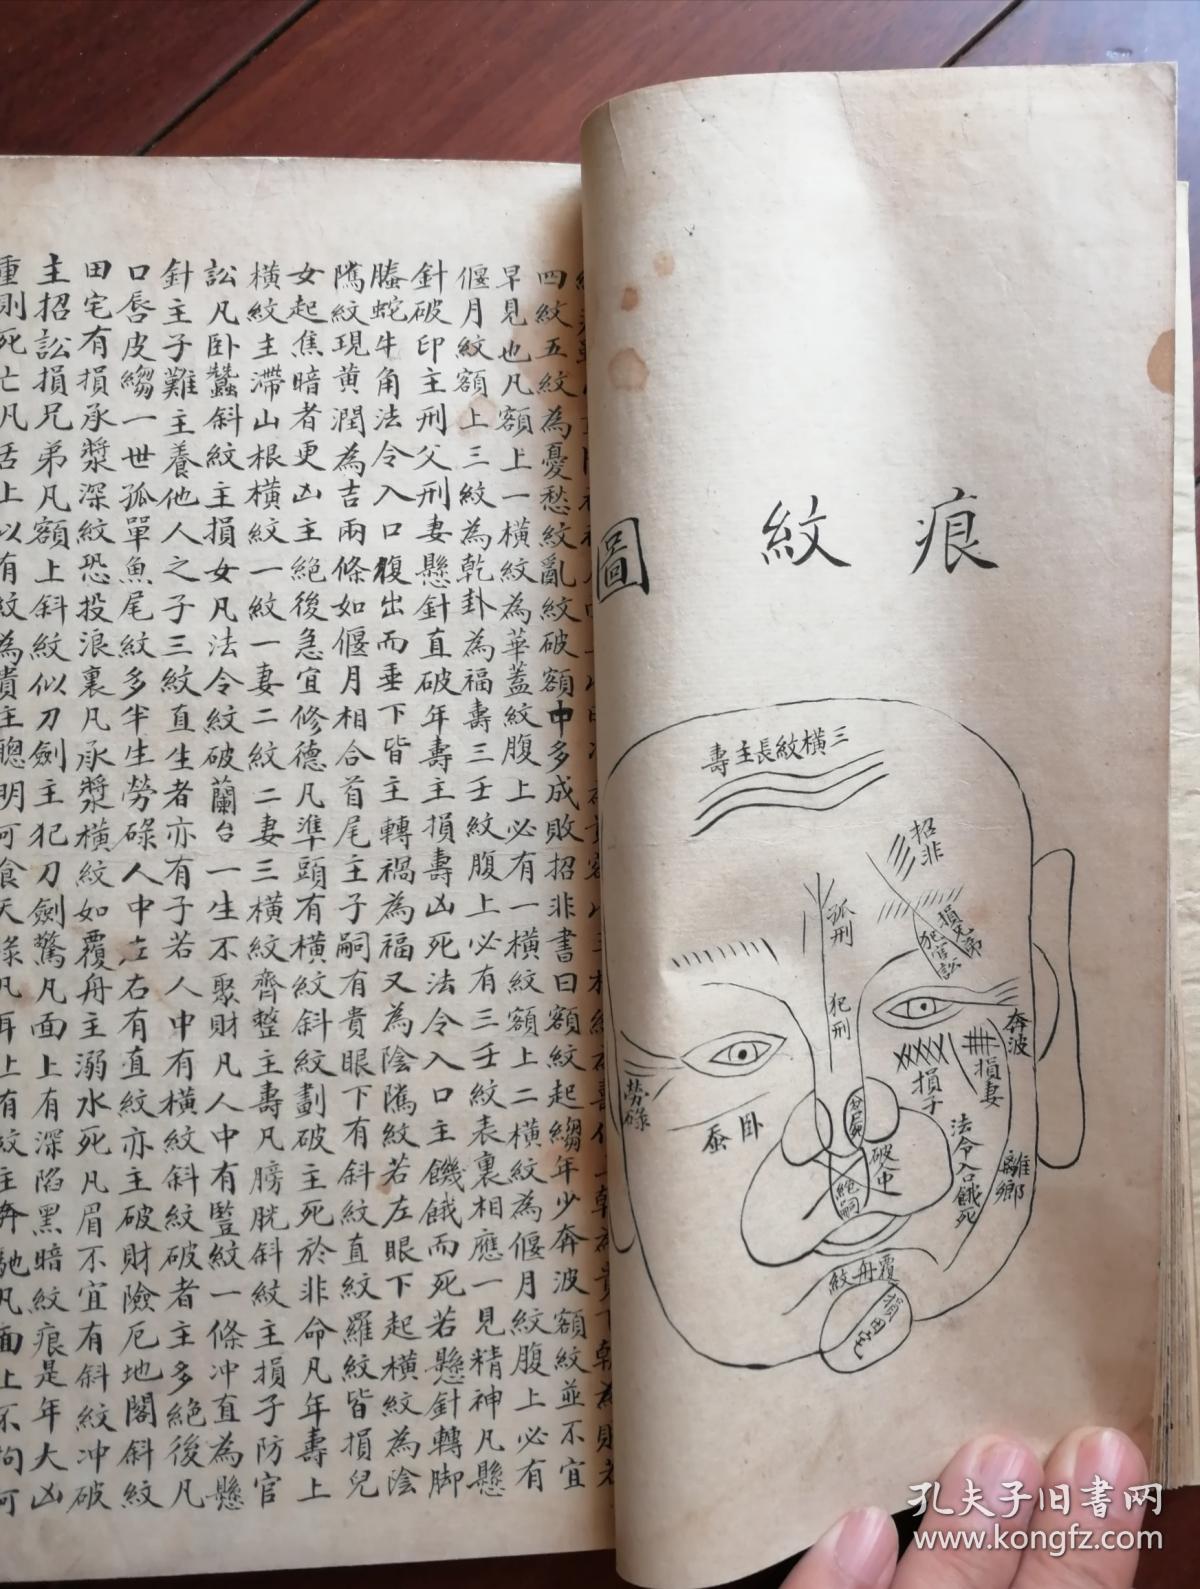 痕紋圖
三橫紋長主壽
招非
損兄弟
犯官訟
孤刑
犯刑
奔波
損妻
損子
勞碌
卧蚕
破中
絕嗣
法令入口餓死
離鄉
覆舟紋
損田宅
四紋五紋為憂愁紋亂紋破額中多成敗招非書曰額紋起縐年少奔波額紋並不宜
早見也凡額上一橫紋為華蓋紋腹上必有一橫紋額上二橫紋為偃月紋腹上必有
偃月紋額上三紋為乾卦為福壽三壬紋腹上必有三壬紋表裏相應一見精神凡懸
針破印主刑父刑妻懸針直破年壽主損壽凶死法令入口主饑餓而死若懸針轉脚
螣蛇牛角法令入口復出而垂下皆主轉禍為福又為陰隲紋若左眼下起橫紋為陰
隲紋現黄潤為吉兩條如偃月相合首尾主子嗣有貴眼下有斜紋直紋羅紋皆損兒
女起焦暗者更凶主絕後急宜修德凡準頭有橫紋斜紋劃破主死於非命凡年壽上
橫紋主滯山根橫紋一紋一妻二紋二妻三橫紋齊整主壽凡膀胱斜紋主損子防官
訟凡卧蠶斜紋主損女凡法令紋破蘭台一生不聚財凡人中有豎紋一條冲直為懸
針主子難主養他人之子三紋直生者亦有子若人中有橫紋斜紋破者主多絕後凡
口唇皮縐一世孤單魚尾紋多半生勞碌人中左右有直紋亦主破財險厄地閣斜紋
田宅有損承漿深紋恐投浪裏凡承漿橫紋如覆舟主溺水死凡眉不宜有斜紋冲破
主招訟損兄弟凡額上斜紋似刀劍主犯刀劍驚凡面上有深陷黑暗紋痕是年大凶
重則死亡凡舌上以有紋為貴主聰明可食天祿凡耳上有紋主奔馳凡面上不拘何
孔夫子旧书网
www.kongfz.com